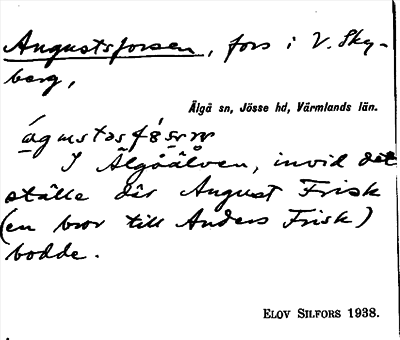 Augustsforsen, fors i V. Sky-
berg,
Älgå sn, Jösse hd, Värmlands län.
I Älgåälven, invid det
ställe där August Frisk
(en bror till Anders Frisk)
bodde.
ELOV SILFORS 1938.